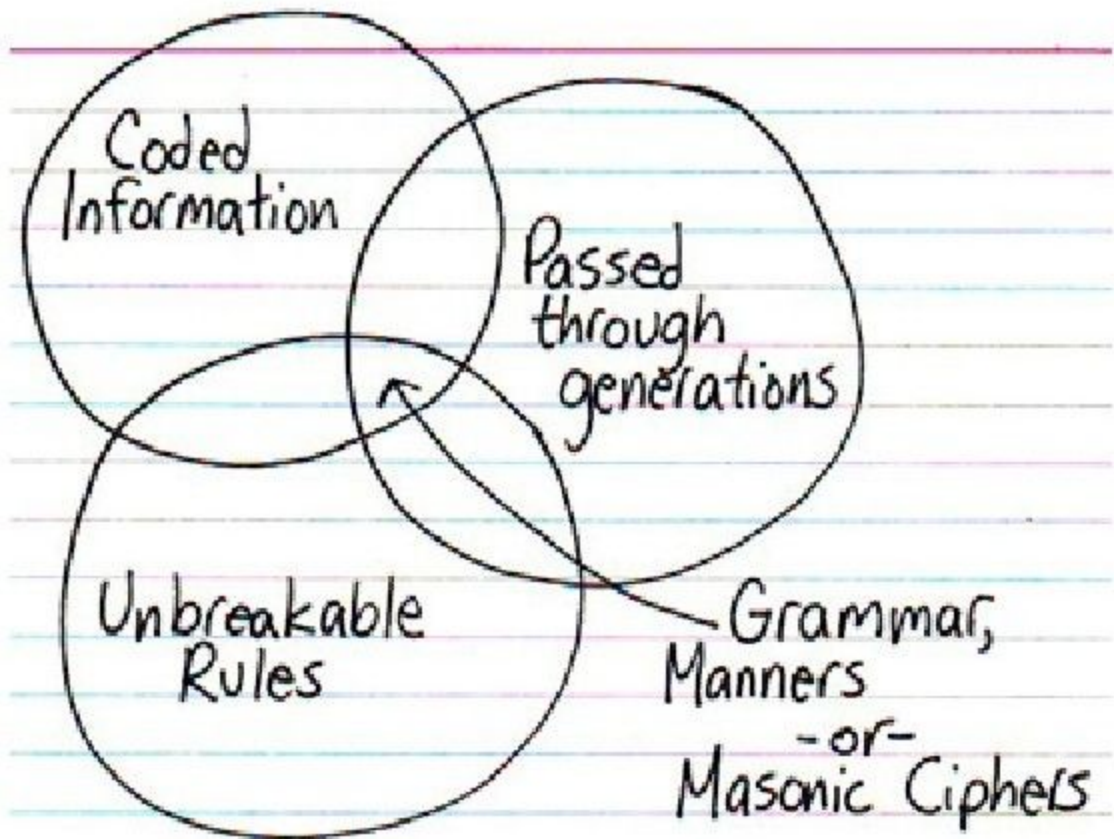 Coded
Information
Passed
through
generations
Unbreakable
Rules
Grammar,
Manners
-or-
Masonic Ciphers